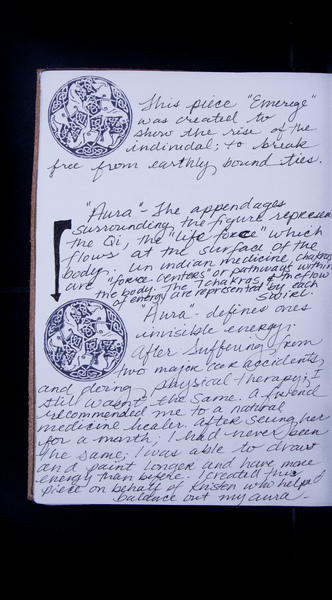 This piece "Emerge"
was created to
show the rise of the
individual; to break
free from earthly bound ties.
"Aura" - The appendages
surrounding the figure represent
the Qi, the "life force" which
flows at the surface of the
body. In indian medicine, chakras
are "force centers" or pathways within
the body. The 7 chakras & the flow
of energy are represented by each
swirl.
"Aura" - defines ones
invisible energy.
After suffering from
two major car accidents
and doing physical therapy; I
still wasn't the same. A friend
recommended me to a natural
medicine healer. After seeing her
for a month; I had never been
the same; I was able to draw
and paint longer and have more
energy than before. I created this
piece on behalf of Kristen who helped
balance out my aura -